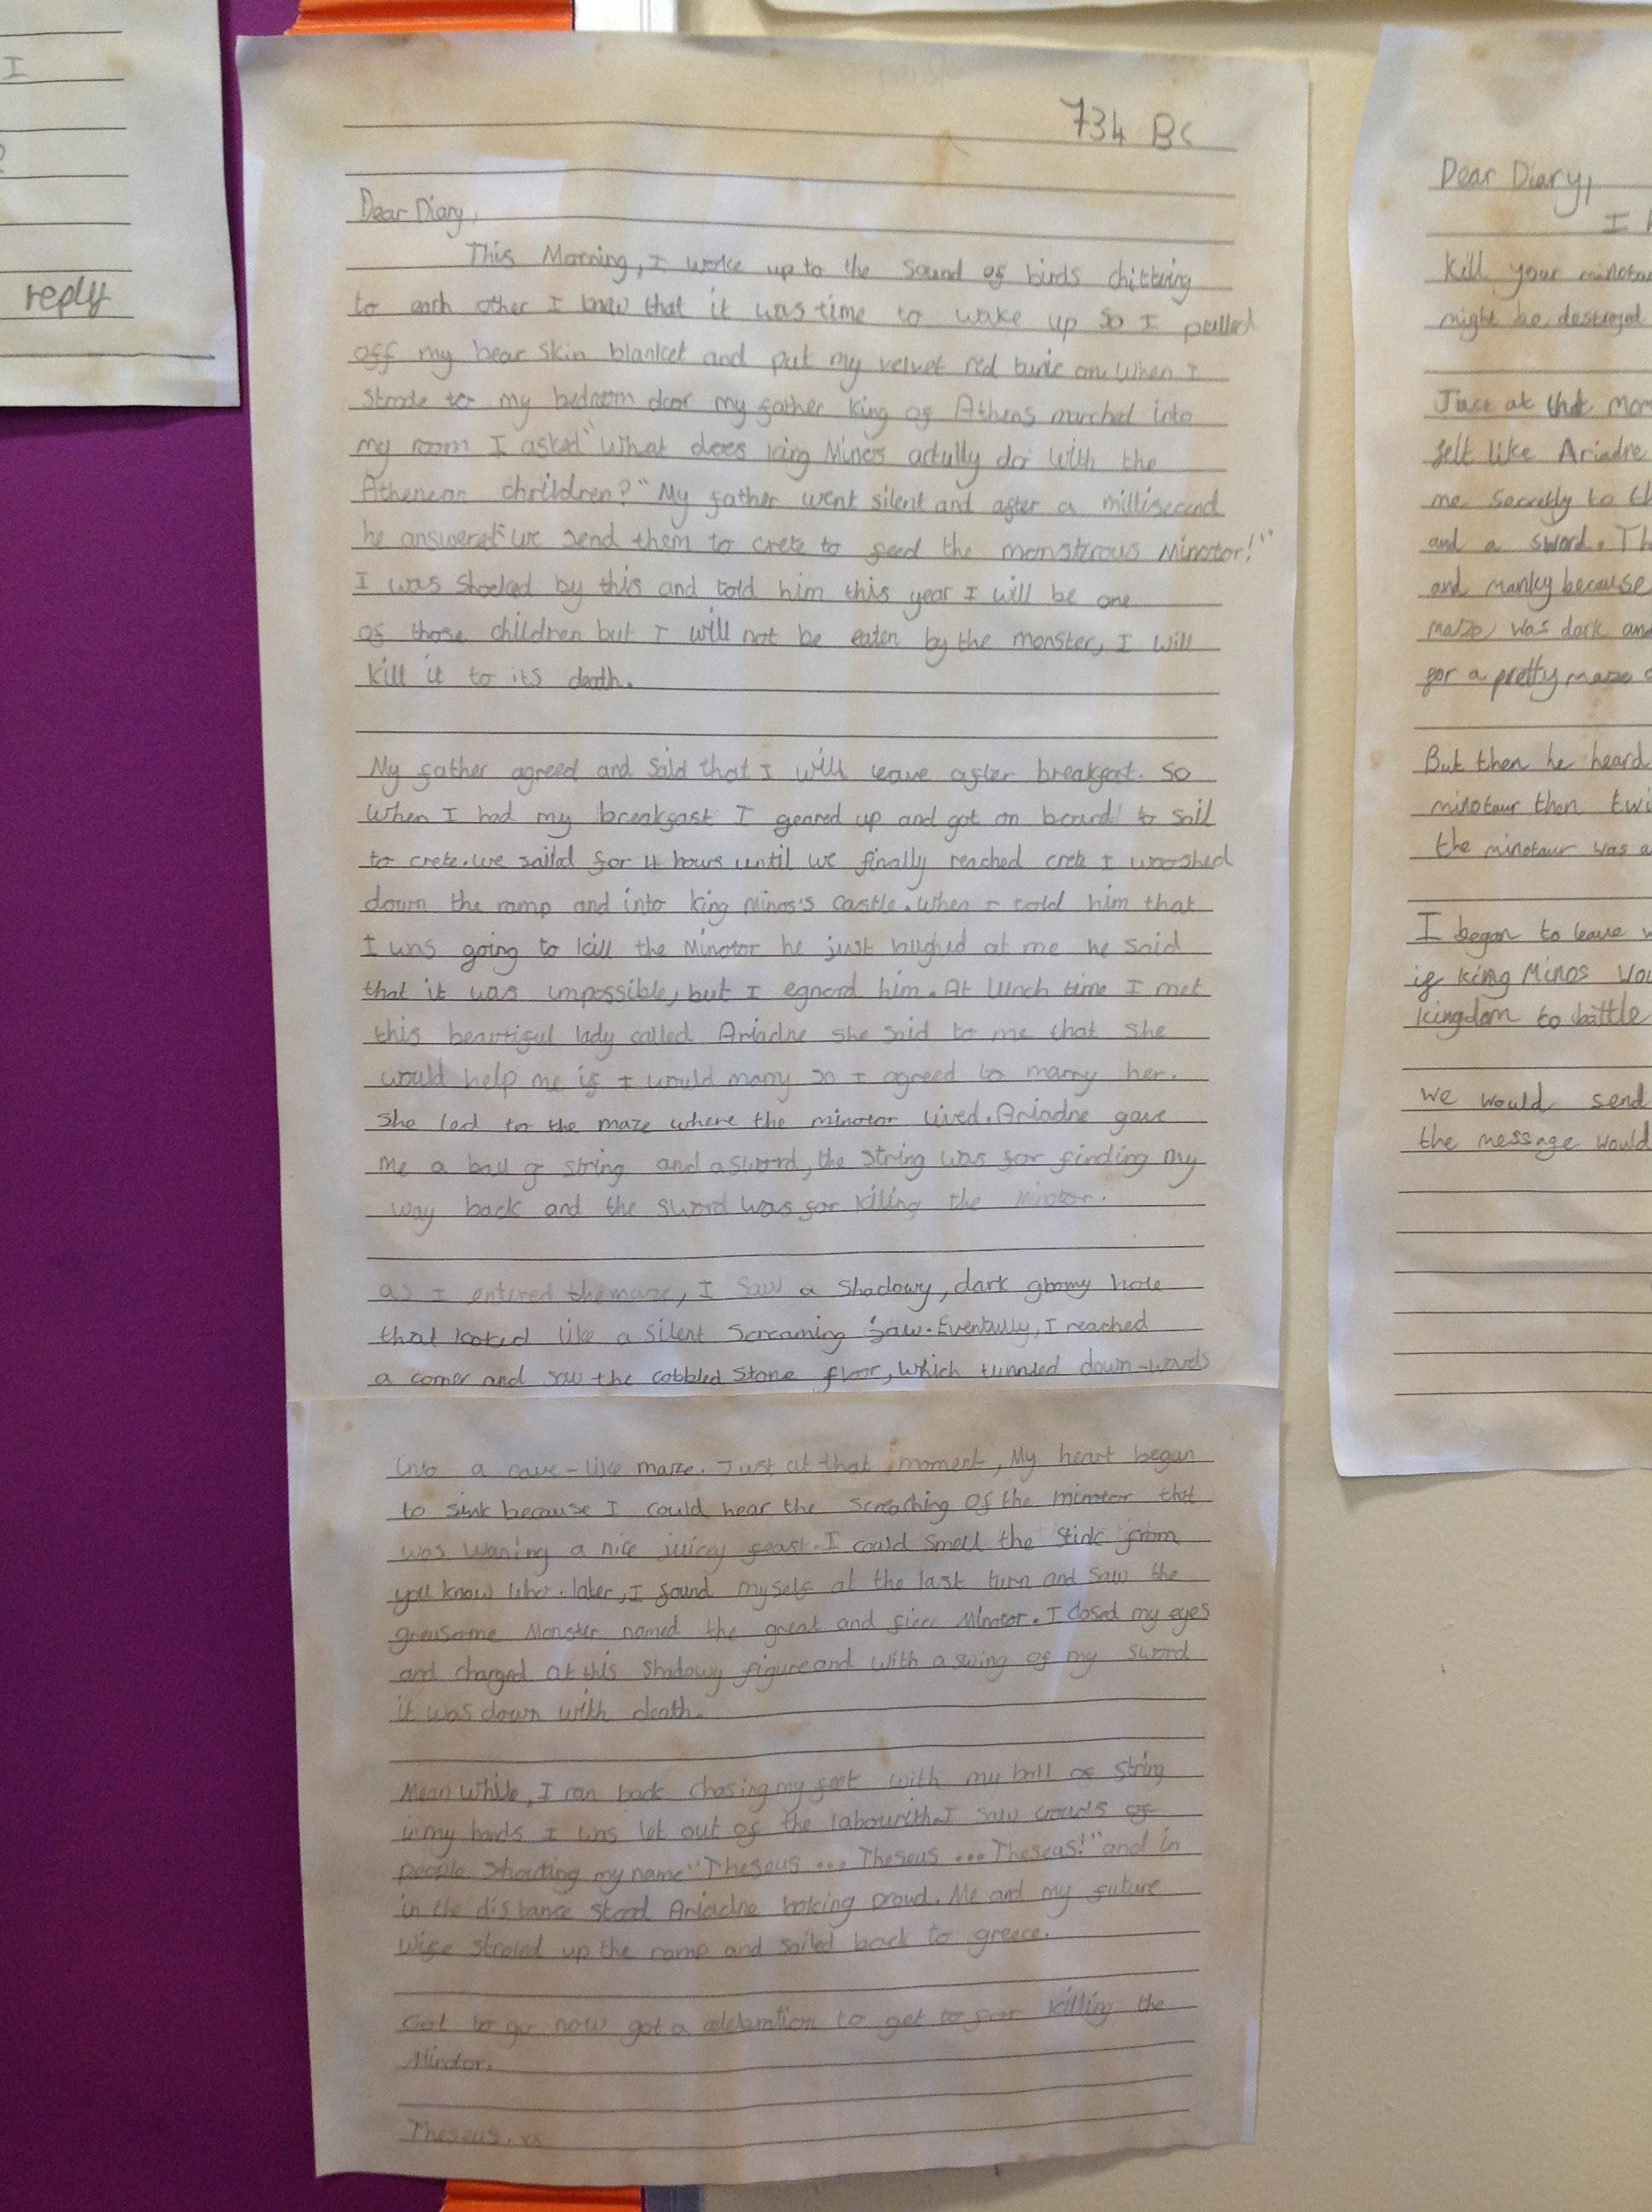 I
reply
734 BC
Dear Diary,
This Morning, I woke up to the sound of birds chittering
to each other I knew that it was time to wake up so I pulled
off my bear skin blanket and put my velvet red tunic on. When I
stroode to my bedroom door my father king of Athens marched into
my room I asked "what does king Minos actully do with the
Athenean chrildren?" My father went silent and after a millisecond
he answered "we send them to crete to feed the monsterous Minotor!"
I was shocked by this and told him this year I will be one
of those children but I will not be eaten by the monster, I will
kill it to its death.
My father agreed and said that I will leave after breakfast. So
when I had my breakfast I geared up and got on board to sail
to crete. we sailed for 4 hours until we finally reached crete I wooshed
down the ramp and into king Minos's castle. When I told him that
I was going to kill the Minotor he just laughed at me he said
that it was impossible, but I egnord him. At lunch time I met
this beautiful lady called Ariadne she said to me that she
would help me if I would marry so I agreed to marry her.
She led to the maze where the minotor lived. Ariadne gave
me a ball of string and a sword, the string was for finding my
way back and the sword was for killing the minotor.
as I entered the maze, I saw a shadowy, dark gloomy hole
that looked like a silent screaming jaw. Eventully, I reached
a corner and saw the cobbled stone floor, which tunneled down-wards
into a cave-like maze. Just at that moment, My heart began
to sink because I could hear the screaching of the minotor that
was waning a nice juicey feast. I could smell the stink from
you know who. later, I found myself at the last turn and saw the
greusome Monster named the great and fiece Minotor. I closed my eyes
and charged at this shadowy figure and with a swing of my sword
it was down with death.
Mean while, I ran back chasing my feet with my ball of string
in my hands I was let out of the labourith. I saw crowds of
people shouting my name "Theseus ... Theseus ... Theseus!" and in
in the distance stood Ariadne looking proud. Me and my future
wife stroled up the ramp and sailed back to greece.
Got to go now got a celebration to get to for killing the
Minotor.
Theseus. xx
Dear Diary,
I
Kill your minotau
might be destroyed
Just at that mom
felt like Ariadne
me secretly to th
and a sword. Th
and manky because
maze was dark and
for a pretty maze
But then he heard
minotaur then twi
the minotaur was a
I began to leave w
if king Minos wou
kingdom to battle
we would send
the message would